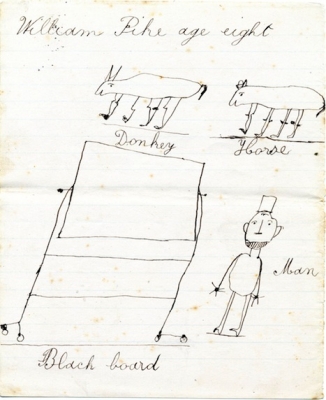 William Pike age eight
Donkey
Horse
Man
Black board